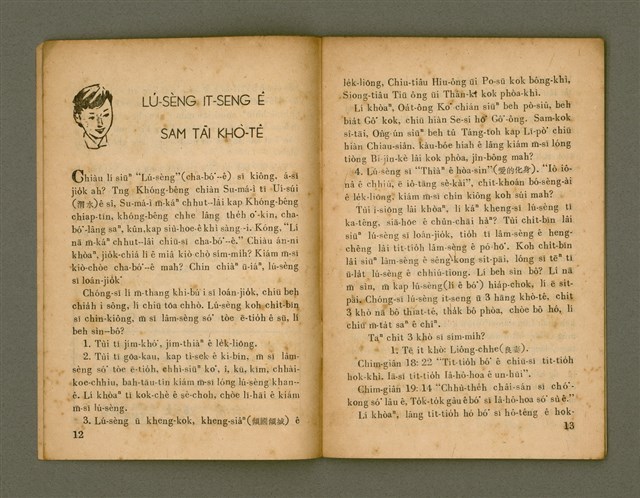 LÚ-SÈNG IT-SENG Ê
SAM TĀI KHÒ-TÊ
Chiàu lí siūⁿ "Lú-sèng"(cha-bó͘--ê) sī kiông, á-sī
jio̍k ah? Tng Khóng-bêng chiàn Su-má-ì tī Ūi-súi
(渭水)ê sî, Su-má-ì m̄-káⁿ chhut--lâi kap Khóng-bêng
chiap-tīn, khóng-bêng chhe lâng théh o͘-kin, cha-
bó͘-lâng saⁿ, kûn, kap siú-hoe-ê khì sàng-i. Kóng, "Lí
nā m̄-káⁿ chhut--lâi chiū-sī cha-bó͘--ê." Chiàu án-ni
khòaⁿ, jio̍k-chiá lí ē miâ kiò chò sím-mih? Kiám m̄-sī
kiò-chòe cha-bó͘--ê mah? Chin chiàⁿ ū-iáⁿ, lú-sèng
sī loán-jio̍k.
Chóng-sī lí m̄-thang khi-hū i sī loán-jio̍k, chiū beh
chiáh i sông, lí chiū tōa chhò. Lú-sèng koh chi̍t-bīn
sī chin-kiông, m̄ sī lâm-sèng só͘ tòe ē-tio̍h ê sū, lí
beh sìn--bô?
1. Tùi tī jím-khó͘, jím-thiàⁿ ê le̍k-liōng.
2. Tùi tī gōa-kau, kap tì-sek ê ki-bín, m̄ sī lâm-
sèng só͘ tòe ē-tio̍h, chhì-siūⁿ ko͘, î, kū, kím, chhái-
koe-chhiu, bah-tâu-tin kiám m̄-sī lóng lú-sèng khan--
ê. Lí khòaⁿ tī kok-chè ê sè-choh, chòe lī-hāi ê kiám
m̄-sī lú-sèng.
3. Lú-sèng ū kheng-kok, kheng-siâⁿ(傾國傾城) ê
12
le̍k-liōng, Chiu-tiâu Hiu-ông ūi Po-sū kok bông-khì,
Siong-tiâu Tiū ông ūi Thàn-kí kok phòa-khì.
Lí khòaⁿ, Oa̍t-ông Ko͘ chián siūⁿ beh pò-siû, beh
bia̍t Gô͘ kok, chiū hiàn Se-si hō͘ Gô͘-ông. Sam-kok
sî-tāi, Ông-ún siūⁿ beh tû Táng-toh kap Lī-pò͘ chiū
hiàn Chiau-siân, kàu-bóe hiah ê lâng kiám m̄-sī lóng
tiòng Bí-jîn-kè lâi kok phòa, jîn-bông mah?
4. Lú-sèng sī "Thiàⁿ ê hòa-sin"(愛的化身). "Iô iô-
nâ ê chhiú, ē iô-tāng sè-kài", chit-khoán bô-sèng-ài
ê le̍k-liōng, kiám m̄-sī chin kiông koh súi mah?
Tùi í-siōng lâi khòaⁿ, lí káⁿ kheng-sī lú-sèng tī
ka-têng, siā-hōe ê chûn-chāi hàⁿ? Tùi chi̍t-bīn lâi
siūⁿ lú-sèng sī loán-jio̍k, tio̍h tī lâm-sèng ê heng-
chêng lâi tit-tio̍h lâm-sèng ê pó-hō͘. Koh chi̍t-bīn
lâi siūⁿ lâm-sèng ê sèng-kong sit-pāi, lóng sī tēⁿ tī
ū-la̍t lú-sèng ê chhiú-tiong. Lí beh sìn bô? Lí nā
m̄ sìn, m̄ kap lú-sèng(lí ê bó͘) ha̍p-chok, lí ē sit-
pāi. Chóng-sī lú-sèng it-seng ū 3 hāng khò-tê, chit
3 khò nā bô thiat-té, tha̍k bô phòa, chòe bô hó, lí
chiū m̄-ta̍t saⁿ ê chîⁿ.
Taⁿ chit 3 khò sī sím-mih?
1: Tē it khò: Liông-chhe(良妻).
Chim-giân 18: 22 "Tit-tio̍h bó͘ ê chiū-sī tit-tio̍h
hok-khì. Iā-sī tit-tio̍h Iâ-hô-hoa ê un-hūi".
Chim-giân 19: 14 "Chhù-the̍h châi-sán sī chó͘-
kong só͘ lâu ê. To̍k-to̍k gâu ê bó͘ sī Iâ-hô-hoa só͘ sù ê."
Lí khòaⁿ, lâng tit-tio̍h hó bó͘ sī hō-tēng ê hok-
13